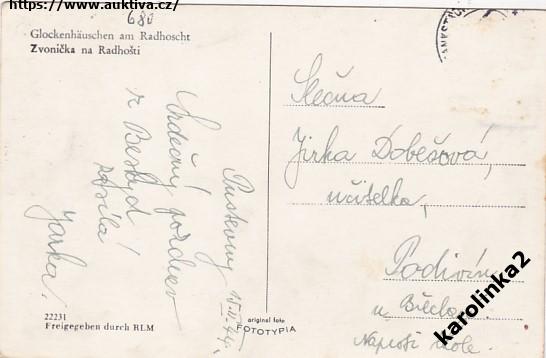 https://www.auktiva.cz/
680
Glockenhäuschen am Radhoscht
Zvonička na Radhošti
Pustevny
Srdečný pozdrav
z Beskyd!
posílá
Jarka.
Slečna
Jirka Dobešová,
učitelka,
Podivín
u Břecl
Naproti škole.
22231
Freigegeben durch RLM
original foto
FOTOTYPIA
karolinka2